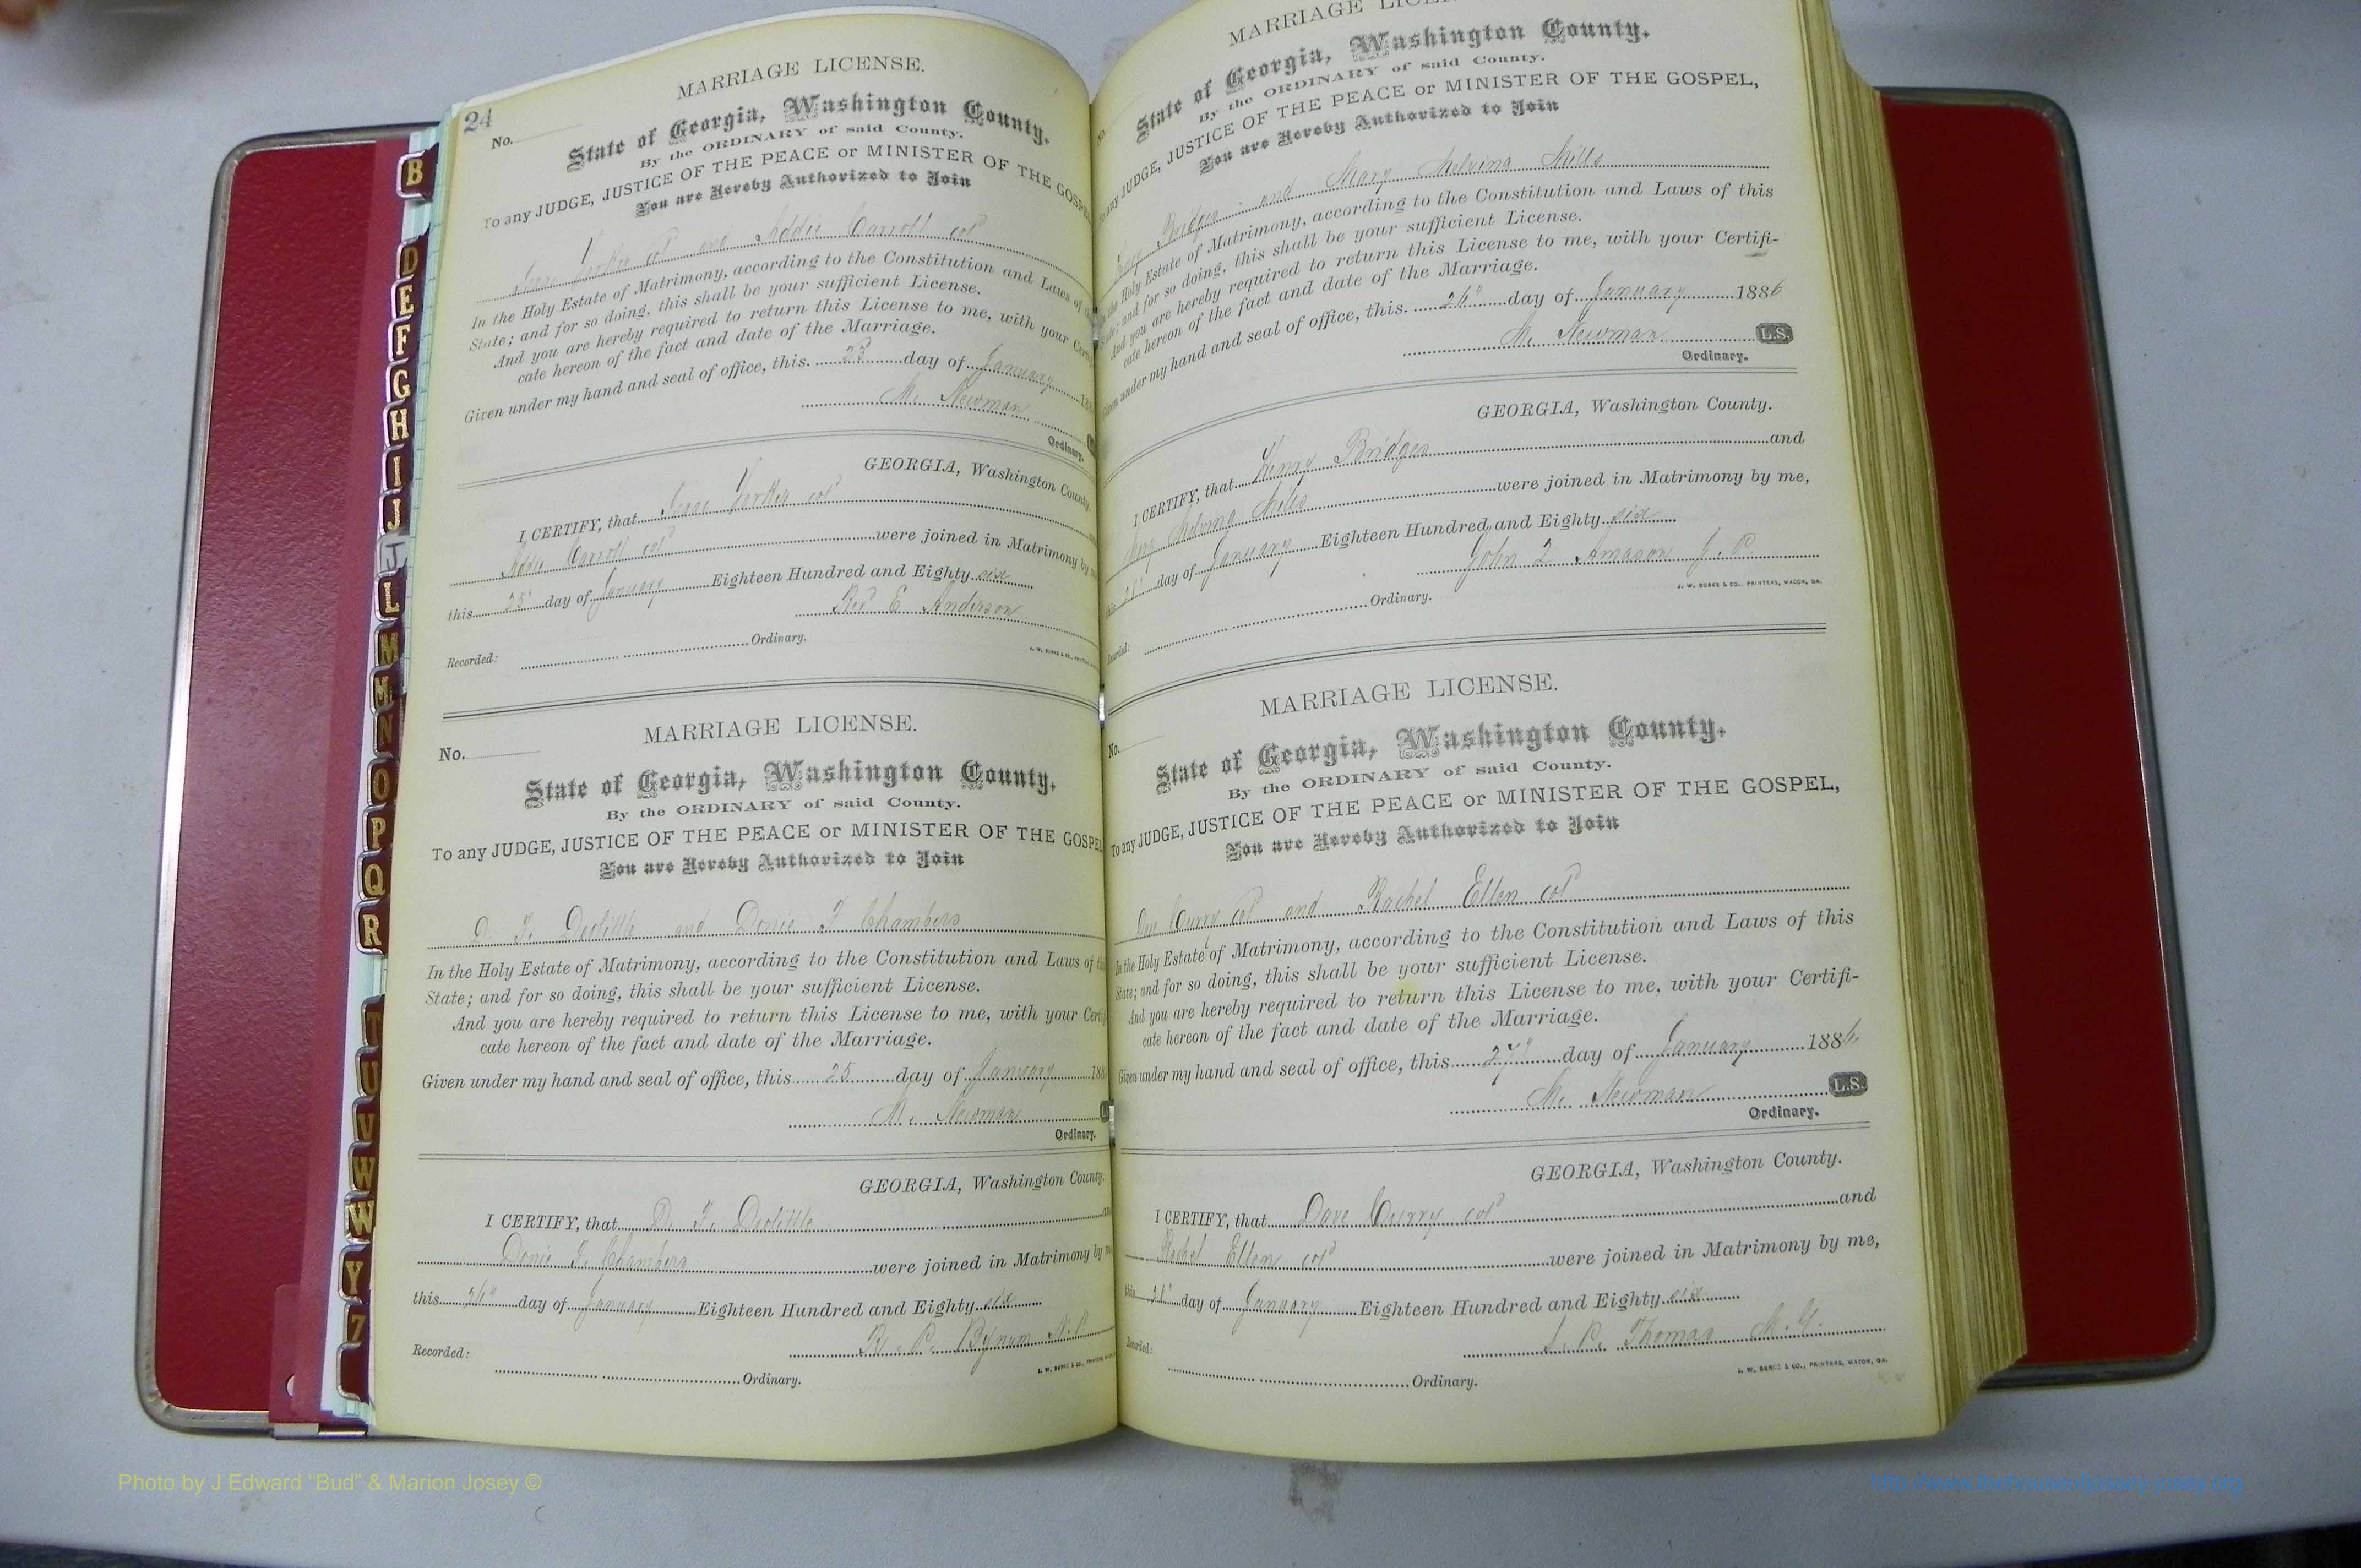 24
MARRIAGE LICENSE.
No.
State of Georgia, Washington County.
By the ORDINARY of said County.
To any JUDGE, JUSTICE OF THE PEACE or MINISTER OF THE GOSPEL
You are Hereby Authorized to Join
col and Addie Carroll col
In the Holy Estate of Matrimony, according to the Constitution and Laws of
State; and for so doing, this shall be your sufficient License.
And you are hereby required to return this License to me, with your Certi
cate hereon of the fact and date of the Marriage.
Given under my hand and seal of office, this. 25 day of January 188
M. Newman
Ordinary.
GEORGIA, Washington County.
I CERTIFY, that col
Addie Carroll col were joined in Matrimony by
this 25" day of January Eighteen Hundred and Eighty six
Rev E. Anderson
Recorded: Ordinary.
J. W. BURKE & CO., PRINTERS,
MARRIAGE LICENSE.
No.
State of Georgia, Washington County.
By the ORDINARY of said County.
To any JUDGE, JUSTICE OF THE PEACE or MINISTER OF THE GOSPEL
You are Hereby Authorized to Join
D. F. Doolittle and Donie F Chambers
In the Holy Estate of Matrimony, according to the Constitution and Laws of
State; and for so doing, this shall be your sufficient License.
And you are hereby required to return this License to me, with your Certi
cate hereon of the fact and date of the Marriage.
Given under my hand and seal of office, this 25 day of January 188
M. Newman
Ordinary.
GEORGIA, Washington County.
I CERTIFY, that D. F. Doolittle
Donie F. Chambers were joined in Matrimony by
this 26" day of January Eighteen Hundred and Eighty six
R. P. Bynum N. P.
Recorded:
Ordinary.
J. W. BURKE & CO., PRINTERS,
MARRIAGE
No.
State of Georgia, Washington County.
By the ORDINARY of said County.
To any JUDGE, JUSTICE OF THE PEACE or MINISTER OF THE GOSPEL,
You are Hereby Authorized to Join
Bridges and Mary Melvina Mills
In the Holy Estate of Matrimony, according to the Constitution and Laws of this
State; and for so doing, this shall be your sufficient License.
And you are hereby required to return this License to me, with your Certifi-
cate hereon of the fact and date of the Marriage.
Given under my hand and seal of office, this. 26" day of January 1886
M. Newman L.S.
Ordinary.
GEORGIA, Washington County.
I CERTIFY, that Henry Bridges and
Mary Melvina Mills were joined in Matrimony by me,
this day of January Eighteen Hundred and Eighty six
John L Amason J. P.
J. W. BURKE & CO., PRINTERS, MACON, GA.
Recorded: Ordinary.
MARRIAGE LICENSE.
No.
State of Georgia, Washington County.
By the ORDINARY of said County.
To any JUDGE, JUSTICE OF THE PEACE or MINISTER OF THE GOSPEL,
You are Hereby Authorized to Join
Curry col and Rachel Ellen col
In the Holy Estate of Matrimony, according to the Constitution and Laws of this
State; and for so doing, this shall be your sufficient License.
And you are hereby required to return this License to me, with your Certifi-
cate hereon of the fact and date of the Marriage.
Given under my hand and seal of office, this 27" day of January 1886
M. Newman L.S.
Ordinary.
GEORGIA, Washington County.
I CERTIFY, that Dave Curry col and
Rachel Ellen col were joined in Matrimony by me,
this day of January Eighteen Hundred and Eighty six
P. Thomas M. G.
Recorded:
Ordinary.
J. W. BURKE & CO., PRINTERS, MACON, GA.
B
D
E
F
G
H
I
J
J
L
M
M
N
O
P
Q
R
T
U
V
W
W
Y
Z
Photo by J Edward “Bud” & Marion Josey ©